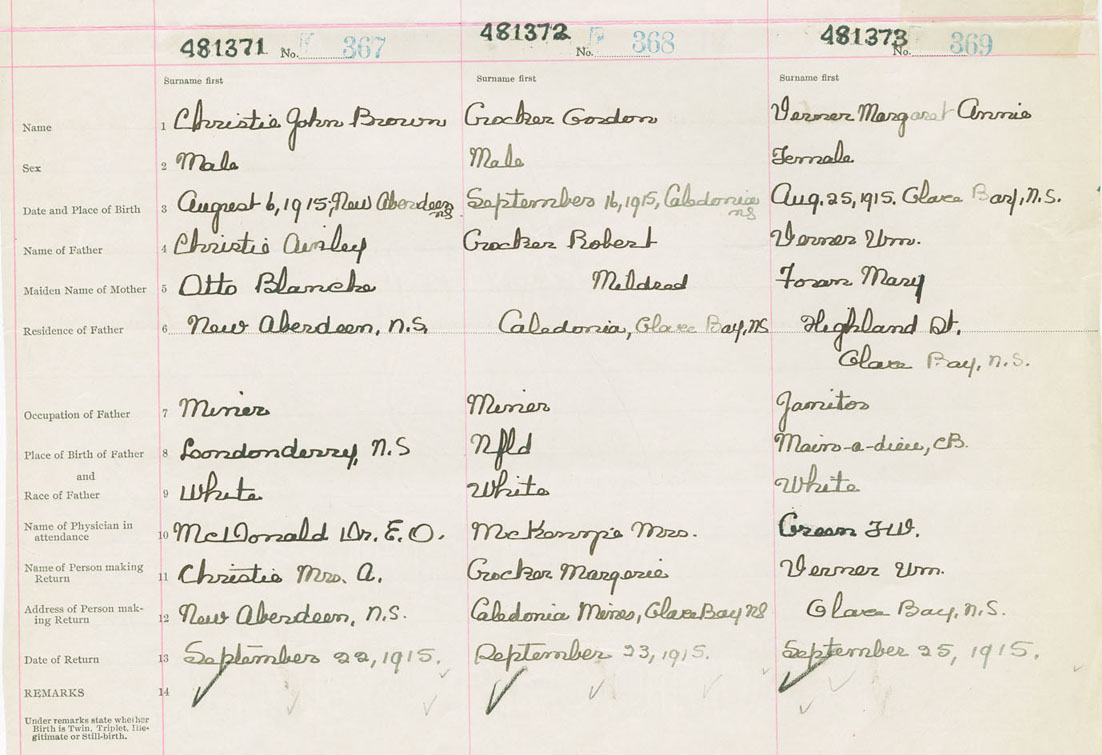 481371 No. 367 481372 No. 368 481373 No. 369
Surname first Surname first Surname first
Name 1 Christie John Brown Crocker Gordon Verner Margaret Annie
Sex 2 Male Male Female
Date and Place of Birth 3 August 6, 1915, New Aberdeen NS September 16, 1915, Caledonia NS Aug. 25, 1915. Glace Bay, N.S.
Name of Father 4 Christie Crocker Robert Verner Wm.
Maiden Name of Mother 5 Otto Blanche Mildead Foran Mary
Residence of Father 6 New Aberdeen, N.S. Caledonia, Glace Bay, NS Highland St.
Glace Bay, N.S.
Occupation of Father 7 Miner Miner Janitor
Place of Birth of Father 8 Londonderry, N.S Nfld Main-a-dieu, CB.
and
Race of Father 9 White White White
Name of Physician in
attendance 10 McDonald Dr. E.O. McKenzie Mrs. Green F.W.
Name of Person making
Return 11 Christie Mrs. A. Crocker Margerie Verner Wm.
Address of Person mak-
ing Return 12 New Aberdeen, N.S. Caledonia Mines, Glace Bay NS Glace Bay, N.S.
Date of Return 13 September 22, 1915. September 23, 1915. September 25, 1915.
REMARKS 14
Under remarks state whether
Birth is Twin, Triplet, Ille-
gitimate or Still-birth.